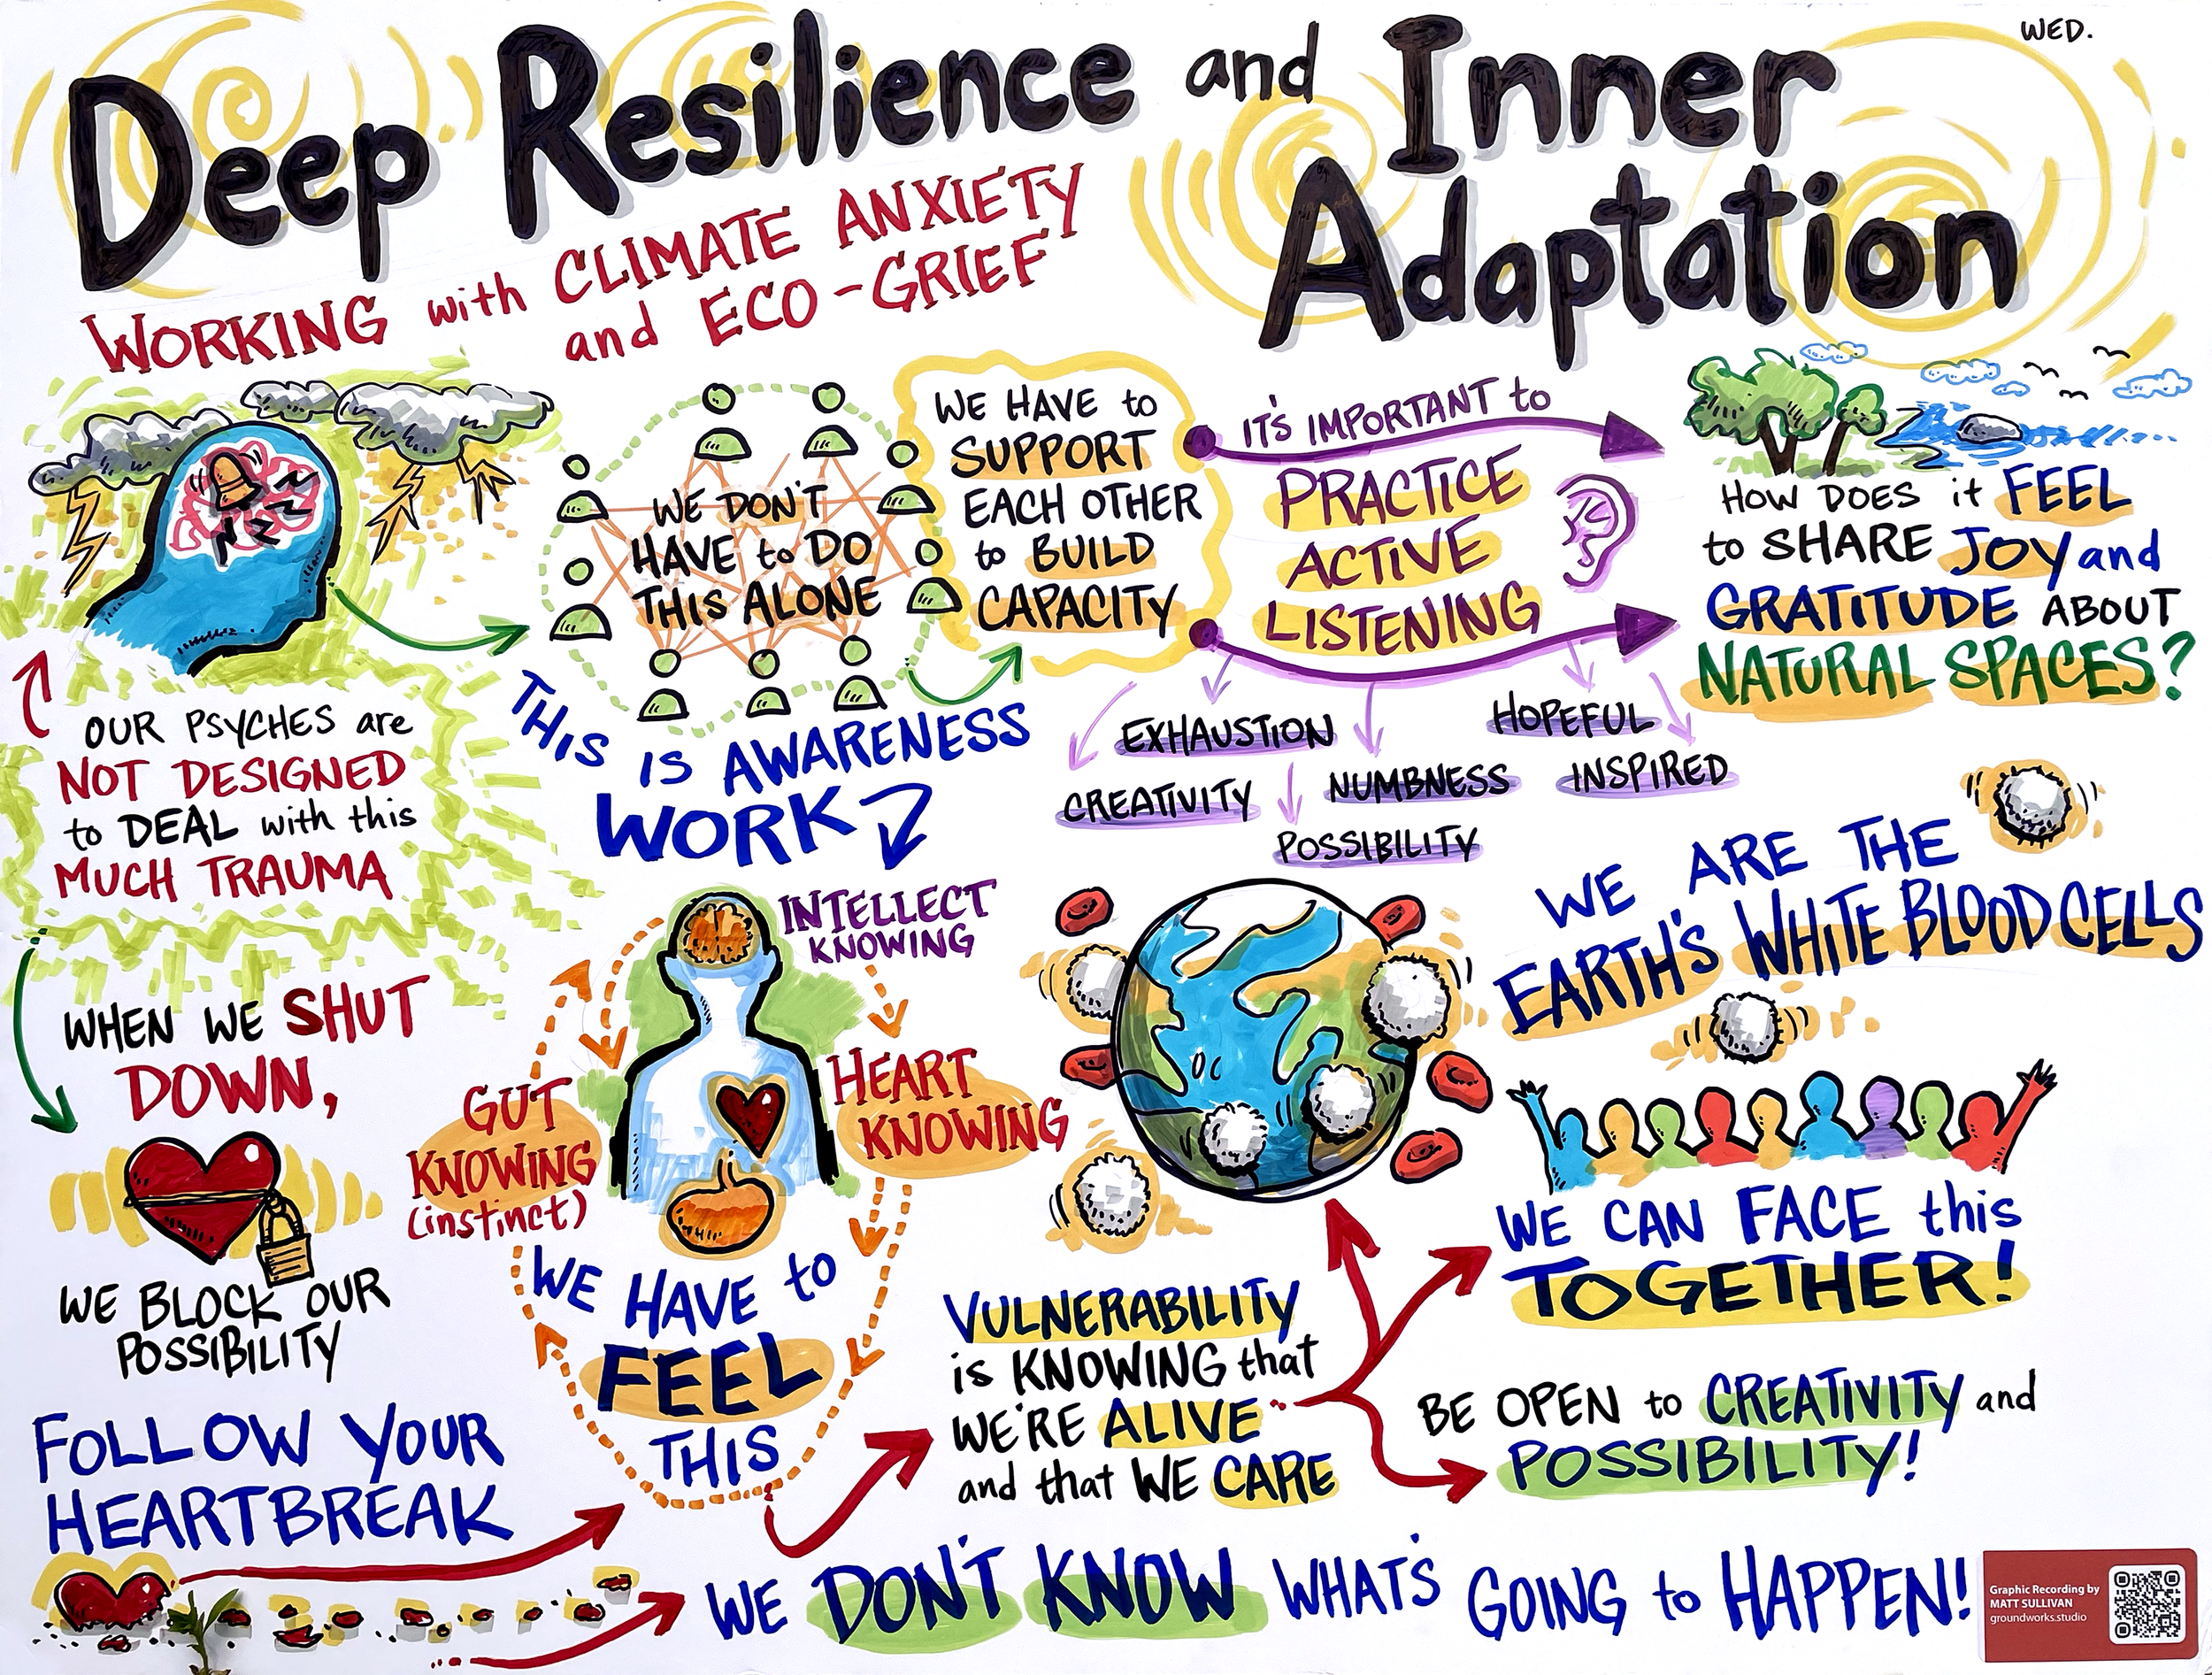 WED.
Deep Resilience and Inner
Adaptation
WORKING with CLIMATE ANXIETY
and ECO-GRIEF
OUR PSYCHES are
NOT DESIGNED
to DEAL with this
MUCH TRAUMA
WE DON'T
HAVE to DO
THIS ALONE
WE HAVE to
SUPPORT
EACH OTHER
to BUILD
CAPACITY
IT'S IMPORTANT to
PRACTICE
ACTIVE
LISTENING
HOW DOES it FEEL
to SHARE JOY and
GRATITUDE ABOUT
NATURAL SPACES?
EXHAUSTION
HOPEFUL
CREATIVITY
NUMBNESS
INSPIRED
POSSIBILITY
THIS IS AWARENESS
WORK
INTELLECT
KNOWING
HEART
KNOWING
GUT
KNOWING
(instinct)
WE HAVE to
FEEL
THIS
WHEN WE SHUT
DOWN,
WE BLOCK OUR
POSSIBILITY
FOLLOW YOUR
HEARTBREAK
WE ARE THE
EARTH'S WHITE BLOOD CELLS
WE CAN FACE this
TOGETHER!
VULNERABILITY
is KNOWING that
WE'RE ALIVE
and that WE CARE
BE OPEN to CREATIVITY and
POSSIBILITY!
WE DON'T KNOW WHAT'S GOING to HAPPEN!
Graphic Recording by
MATT SULLIVAN
groundworks.studio